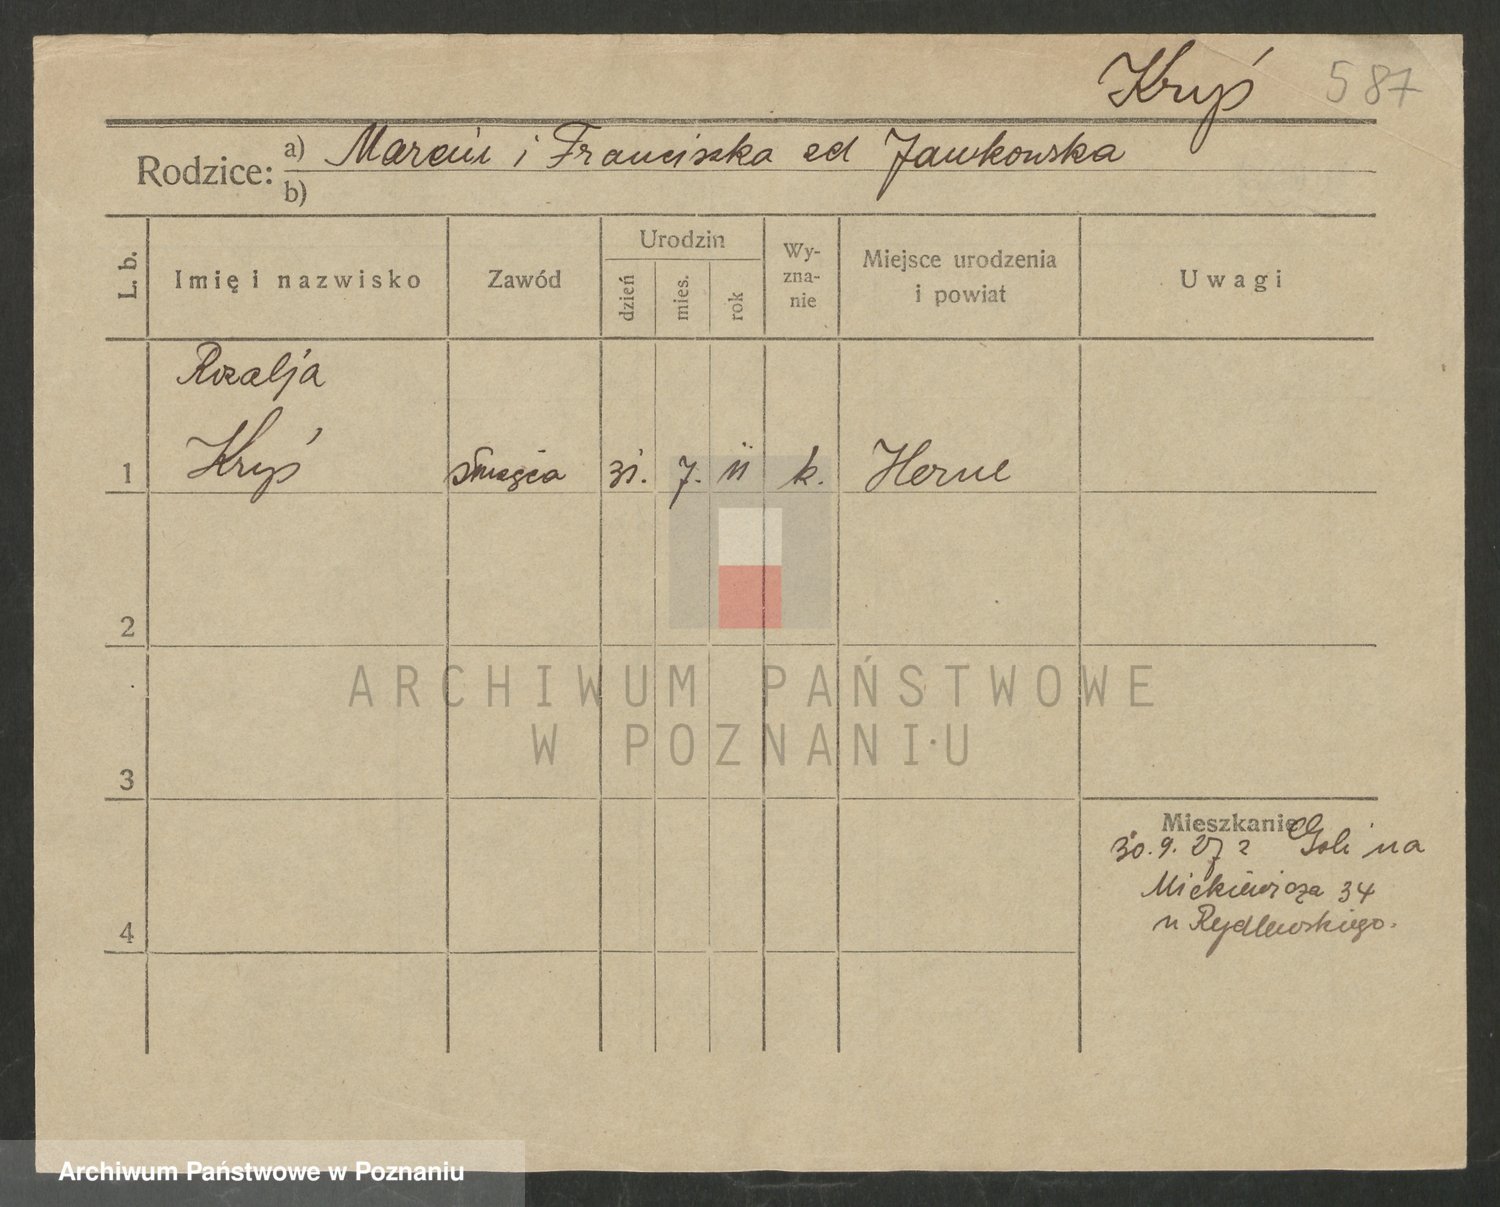 Kryś 587
Rodzice: a) Marcin i Franciszka zd Jankowska
b)
L. b.
Imię i nazwisko
Zawód
Urodzin
dzień
mies.
rok
Wy-
zna-
nie
Miejsce urodzenia
i powiat
Uwagi
Rozalja
1 Kryś służąca 31. 7. 11 k. Herne
2
3
4
Mieszkanie
30. 9. 27 z Golina
Mickiewicza 34
u Rydlewskiego.
ARCHIWUM PAŃSTWOWE
W POZNANIU
Archiwum Państwowe w Poznaniu